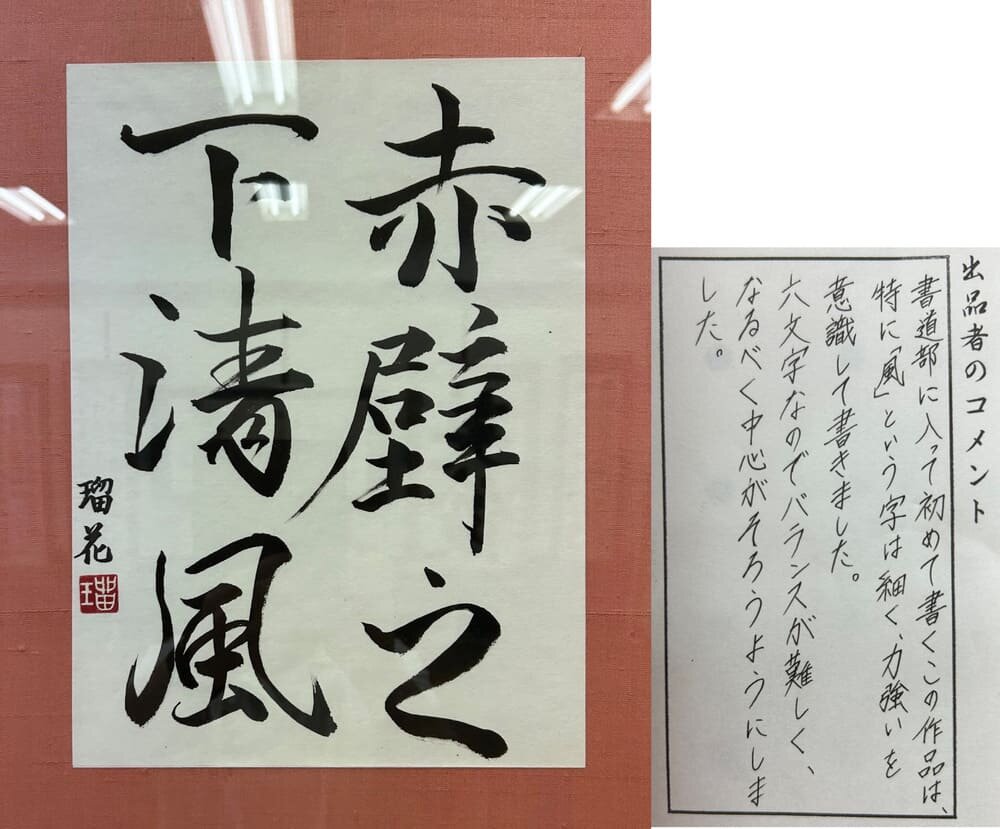 赤壁之
下清風
瑠花
瑠
出品者のコメント
書道部に入って初めて書くこの作品は、
特に「風」という字は細く、力強いを
意識して書きました。
六文字なのでバランスが難しく、
なるべく中心がそろうようにしま
した。